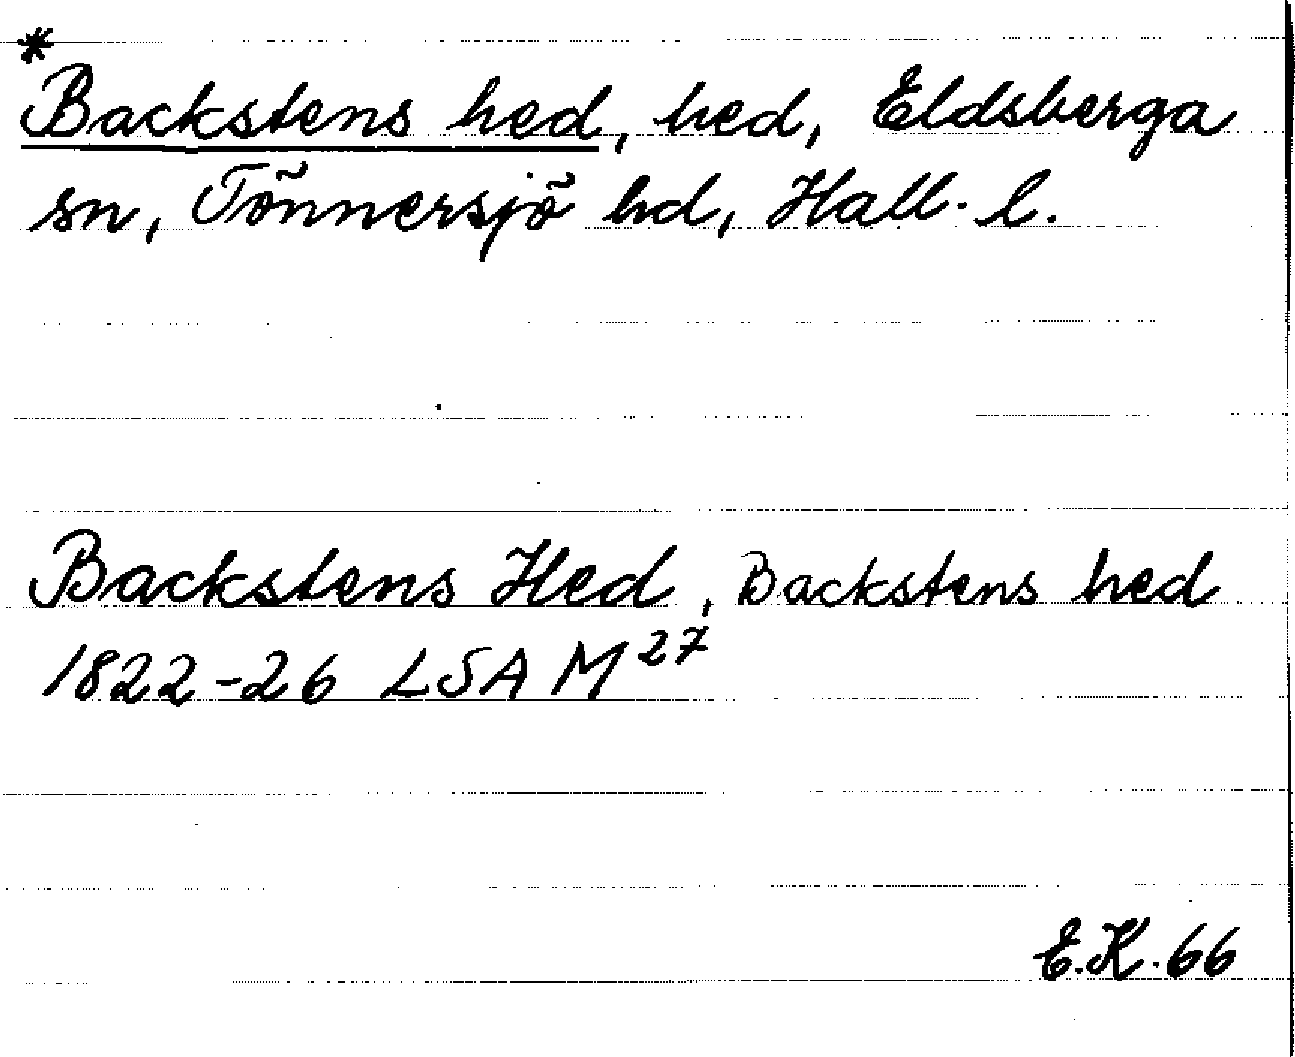 *
Backstens hed, hed, Eldsberga
sn, Tönnersjö hd, Hall. l.
Backstens Hed, Backstens hed
1822-26 LSA M27
E.K. 66